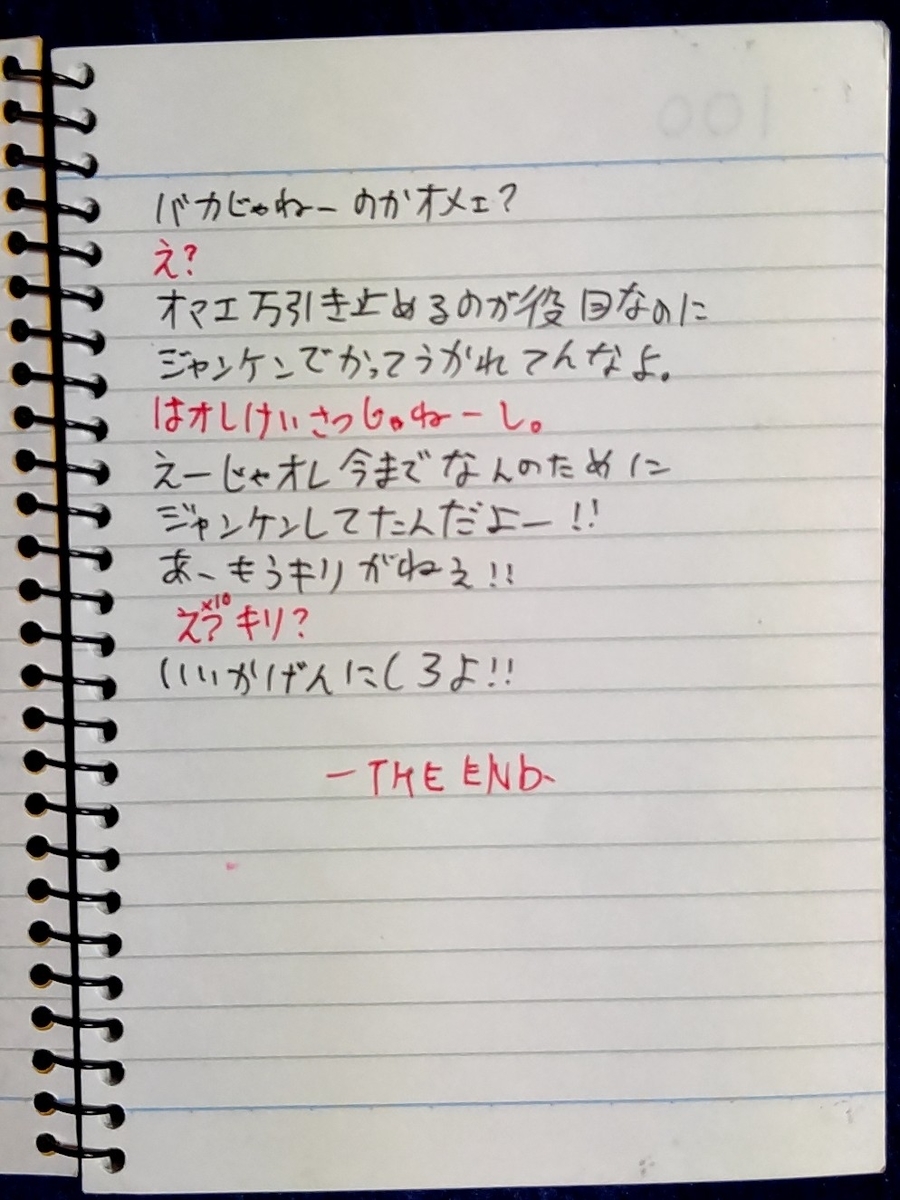 バカじゃねーのかオメェ?
え?
オマエ万引き止めるのが役目なのに
ジャンケンでかってうかれてんなよ。
はオレけいさつじゃねーし。
えーじゃオレ今までなんのために
ジャンケンしてたんだよー!!
あ~もうキリがねぇ!!
え?×10キリ?
いいかげんにしろよ!!
-THE END-